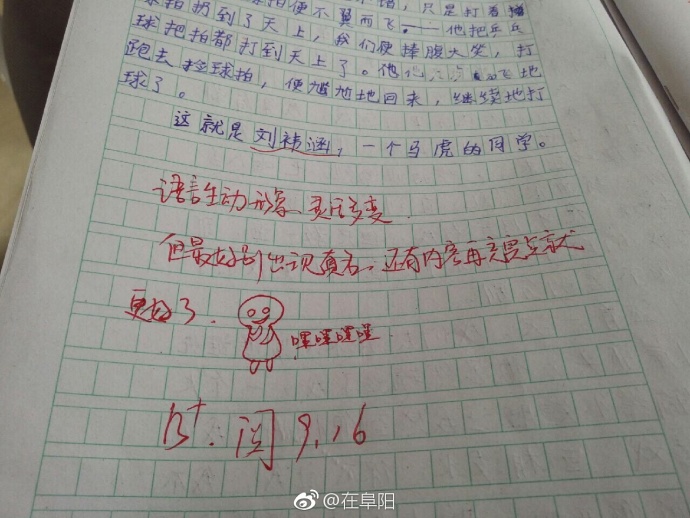 球拍便不翼而飞。
球拍扔到了天上,我们便捧腹大笑,打
球把拍都打到天上了。他 飞 地
跑去捡球拍,便尴尬地回来,继续地打
球了。
这就是刘祎涵,一个马虎的同学。
语言生动形象、灵活多变
但最好别出现真名,还有内容再充实点就
更好了.
嘿嘿嘿嘿
B+. 阅 9.16
@在阜阳